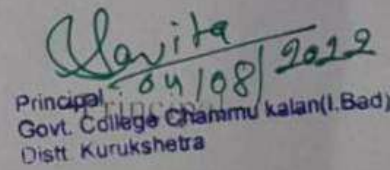 Savita
04/08/2022
Principal
Govt. College Chammu kalan(I.Bad)
Distt. Kurukshetra